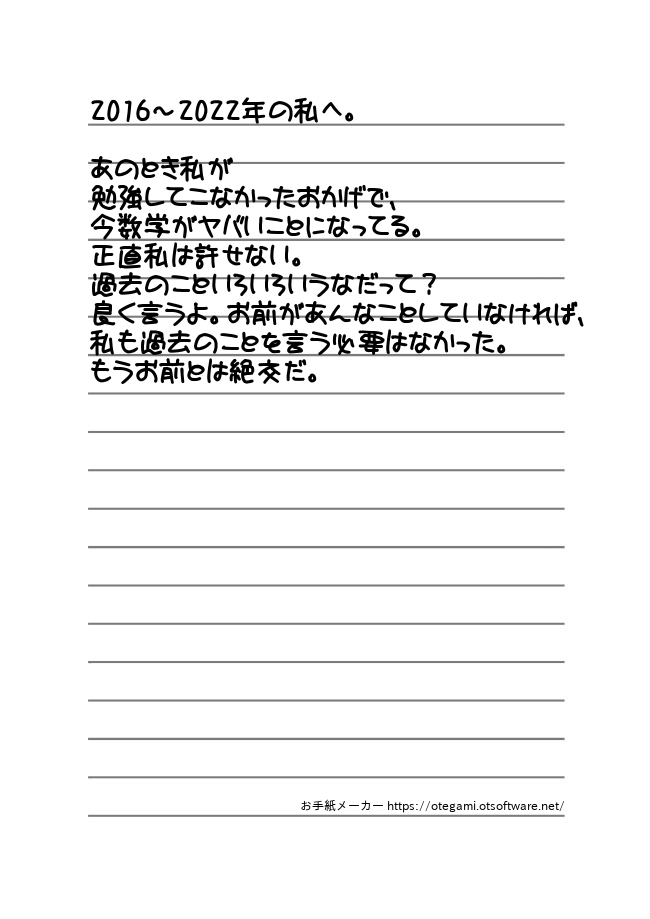 2016〜2022年の私へ。
あのとき私が
勉強してこなかったおかげで、
今数学がヤバいことになってる。
正直私は許せない。
過去のこといろいろいうなだって？
良く言うよ。お前があんなことしていなければ、
私も過去のことを言う必要はなかった。
もうお前とは絶交だ。
お手紙メーカー https://otegami.otsoftware.net/